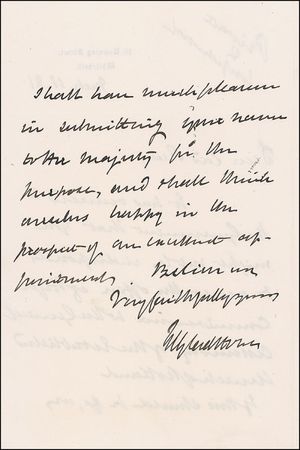 shall have much pleasure
in submitting your name
to Her Majesty for the
purpose, and shall think
ourselves happy in the
prospect of an excellent ap-
pointment. Believe me
Very faithfully yours
W E Gladstone